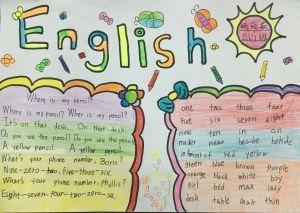 English
Where is my pencil?
Where is my pencil? Wher is my pencil?
It's on that desk. On that desk.
Do you see the pencil? Do you see the pencil?
A yellow pencil. A yellow pencil.
What's your phone number, Boris?
Nine-zero-two, five-three-six.
What's your phone number, phyllis?
Eight-seven-four-two-zero-six
one two three four
five six seven eight
nine ten in on
nuder near beside behide
in front of red yellow
green blue brown purple
orange black white boy
girl bed man lady
desk table chair thin